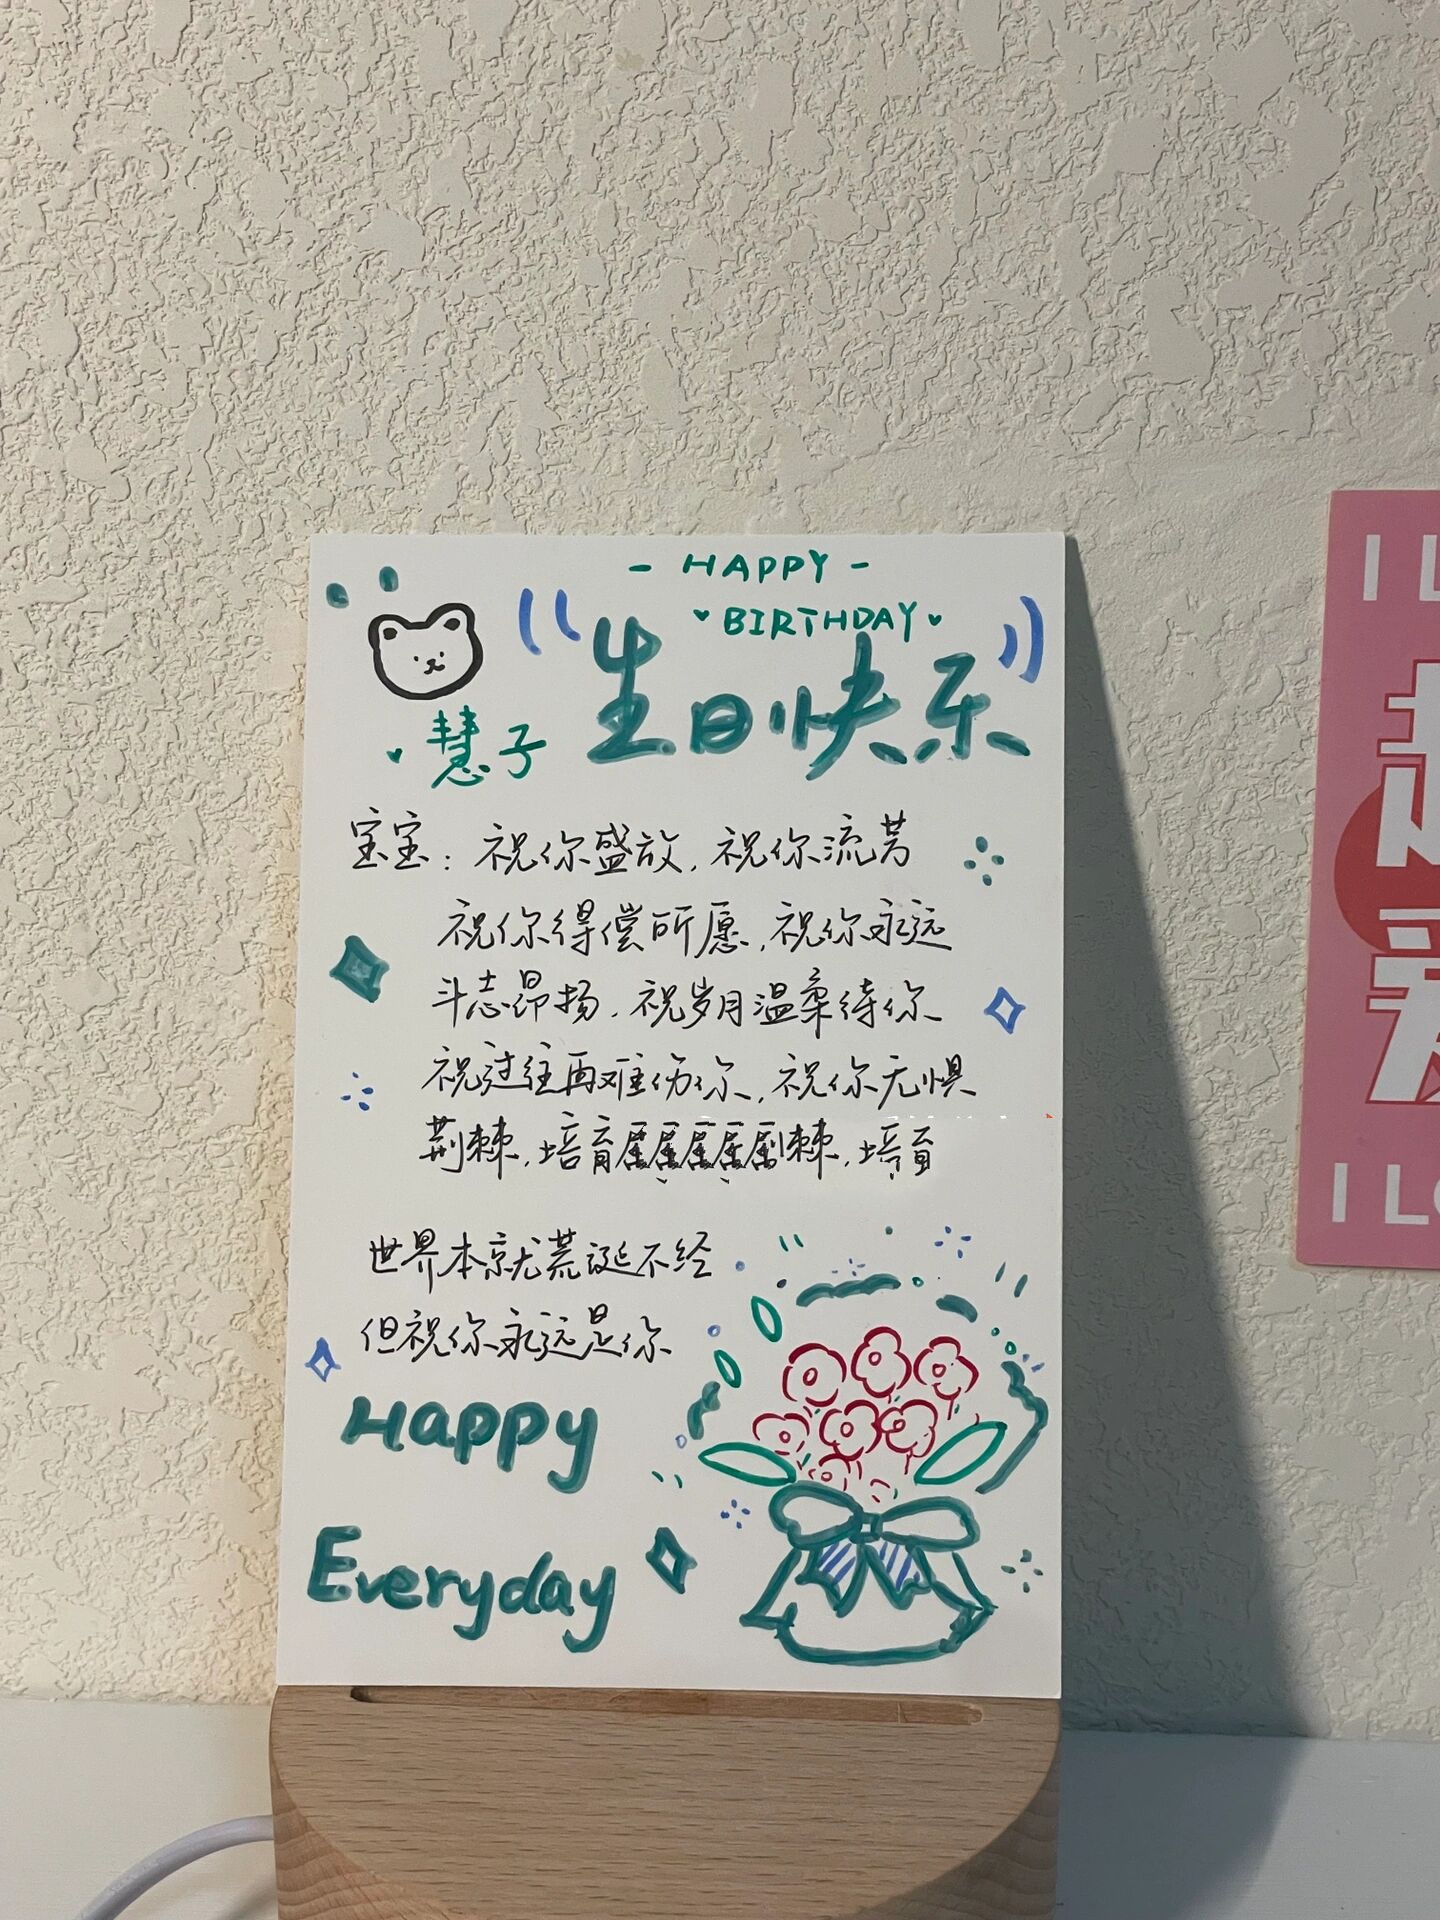 - HAPPY -
BIRTHDAY
生日快乐
慧子
宝宝：祝你盛放，祝你流芳
祝你得偿所愿，祝你永远
斗志昂扬，祝岁月温柔待你
祝过往再难伤你，祝你无惧
荆棘，培育棘，培育
世界本就荒诞不经
但祝你永远是你
Happy
Everyday
I L
I LO